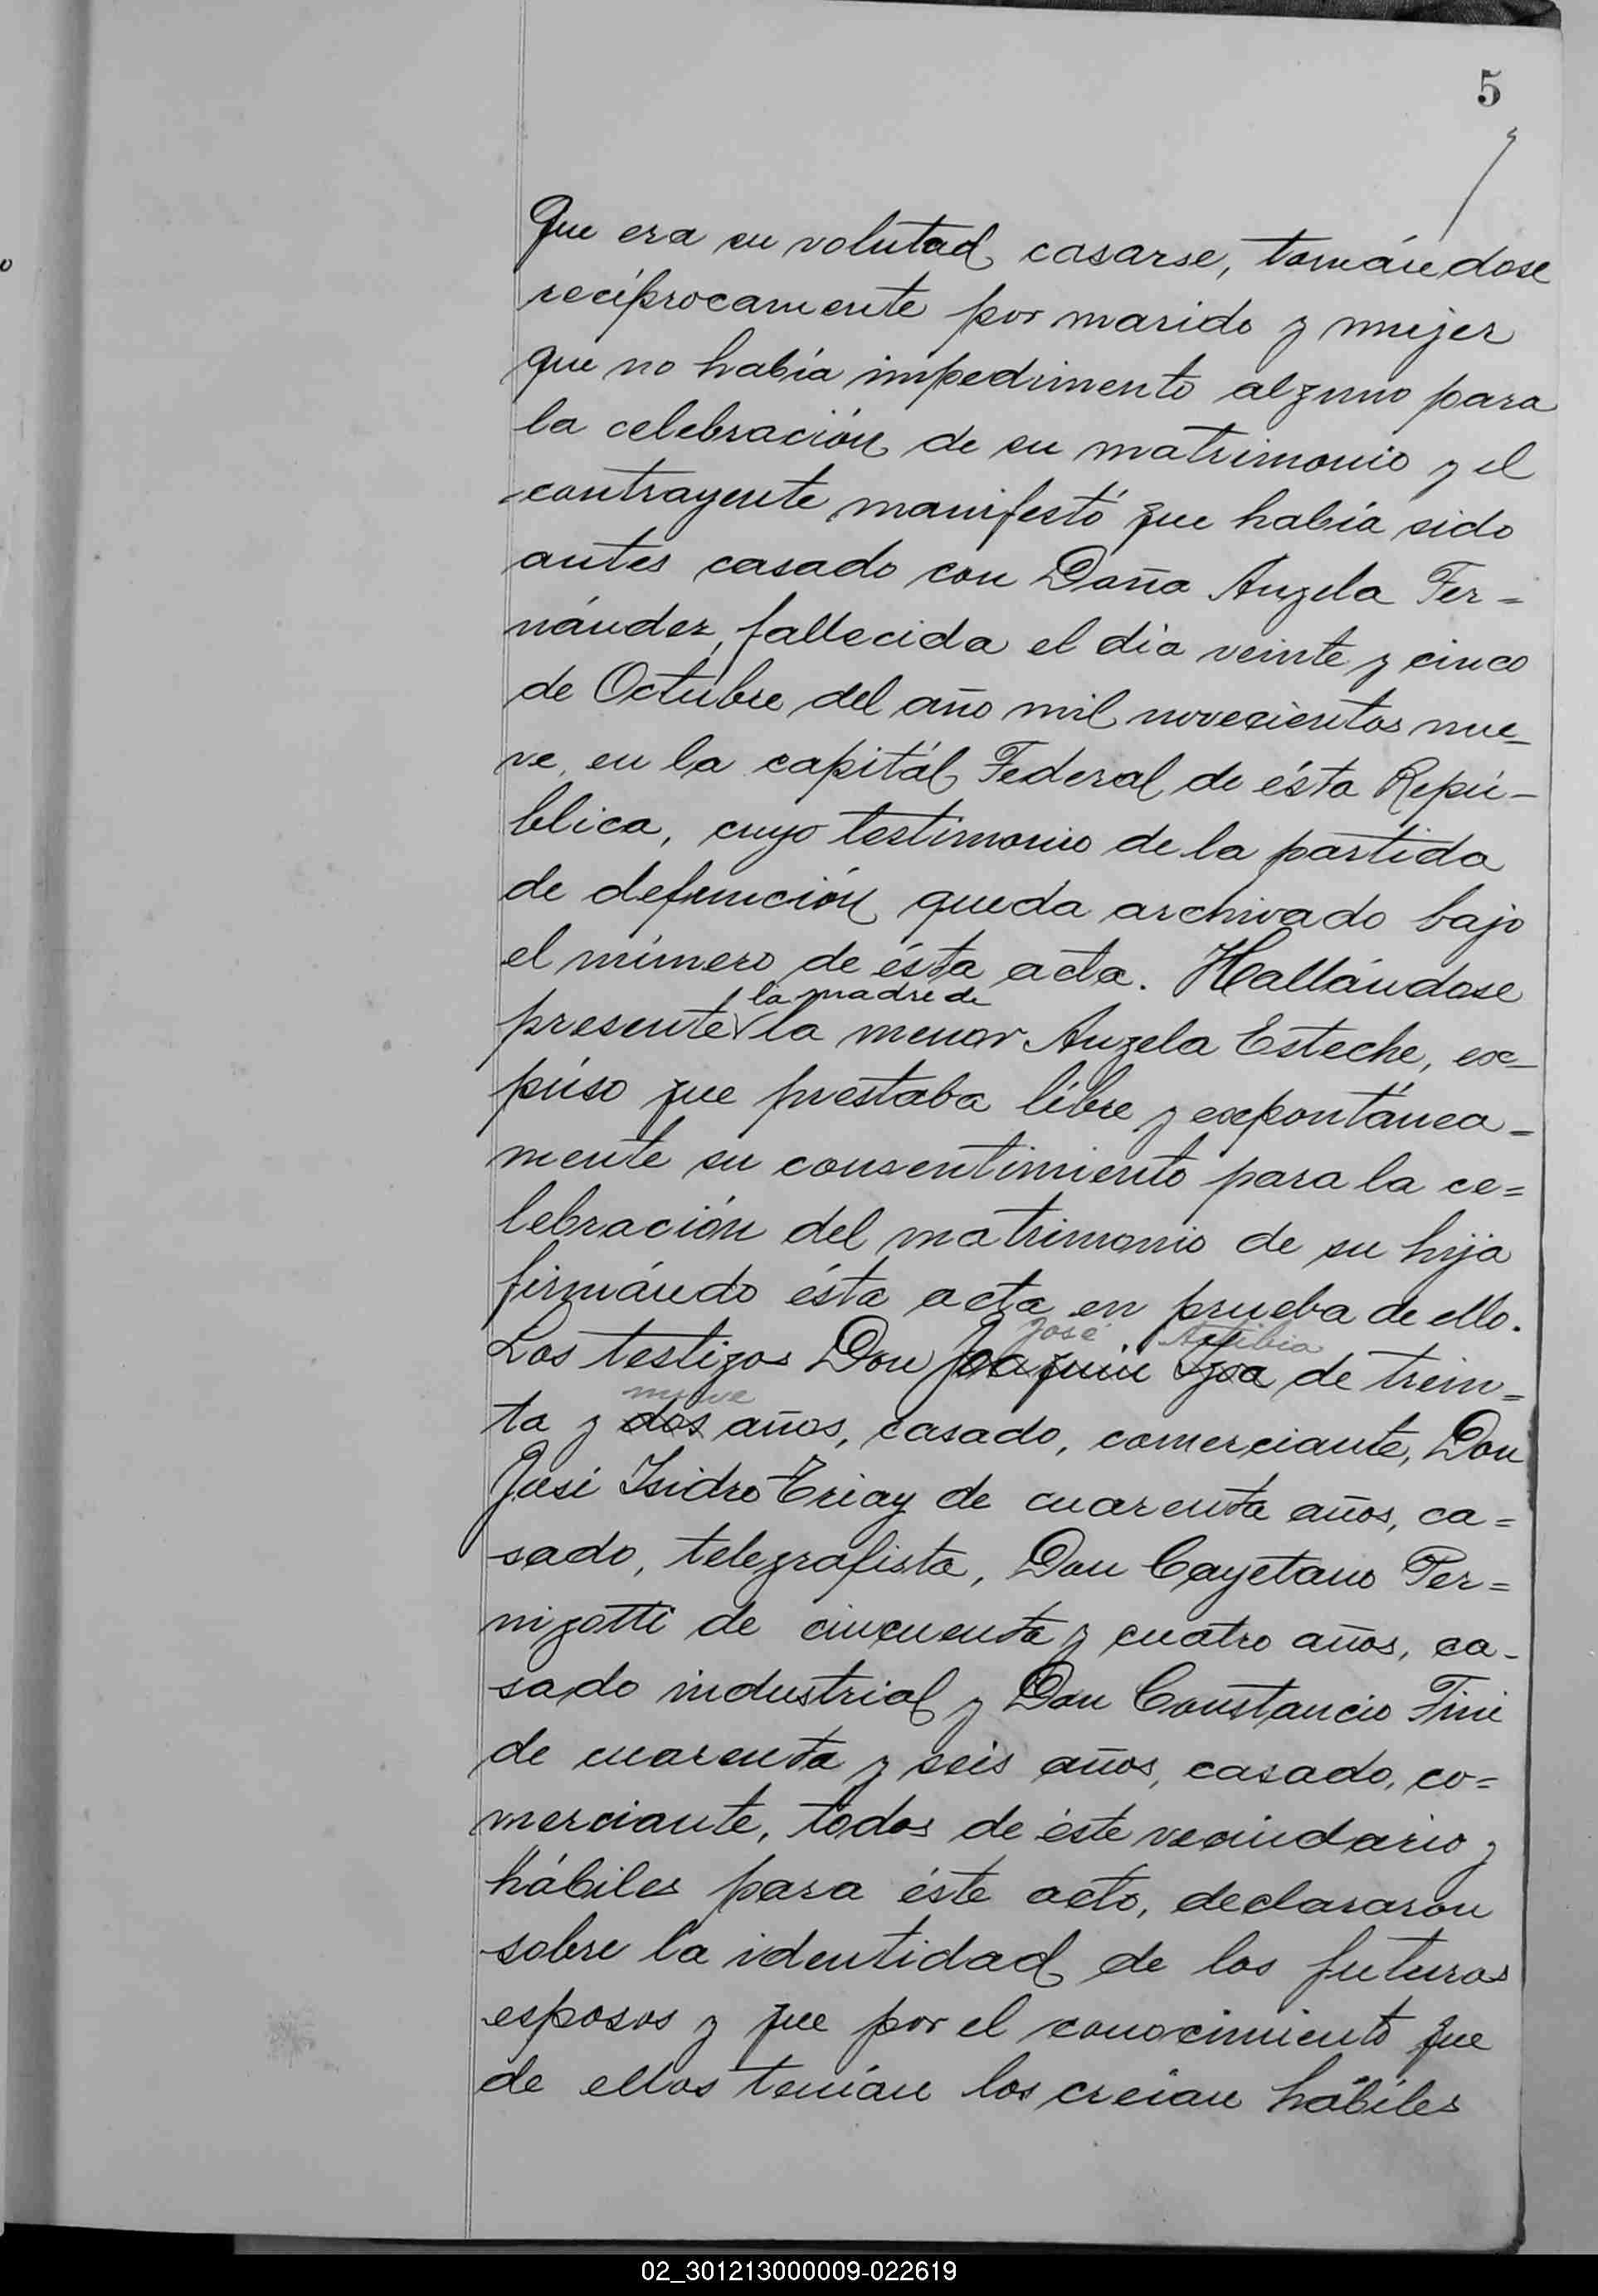 5
Que era su volutad casarse, tomándose
recíprocamente por marido y mujer
que no había impedimento alguno para
la celebración de su matrimonio y el
contrayente manifestó que había sido
antes casado con Doña Angela Fer=
nández, fallecida el día veinte y cinco
de Octubre del año mil novecientos nue-
ve, en la capitál Federal de ésta Repú-
blica, cuyo testimonio de la partida
de defunción queda archivado bajo
el número de ésta acta. Hallándose
la madre de
presente la menor Angela Esteche, ex-
púso que prestaba líbre y expontánea-
mente su consentimiento para la ce=
lebración del matrimonio de su hija
firmándo ésta acta en prueba de ello.
José
Los testigos Don Joaquin de trein=
nueve
ta y dos años, casado, comerciante, Don
José Isidro Eriay de cuarenta años, ca=
sado, telegrafista, Don Cayetano Per=
nigotti de cincuenta y cuatro años, ca-
sado industrial y Don Constancio Fini
de cuarenta y seis años, casado, co=
merciante, todos de éste vecindario y
hábiles para éste acto, declararon
sobre la identidad de los futuros
esposos y que por el conocimiento que
de ellos tenían los creían hábiles
02_301213000009-022619